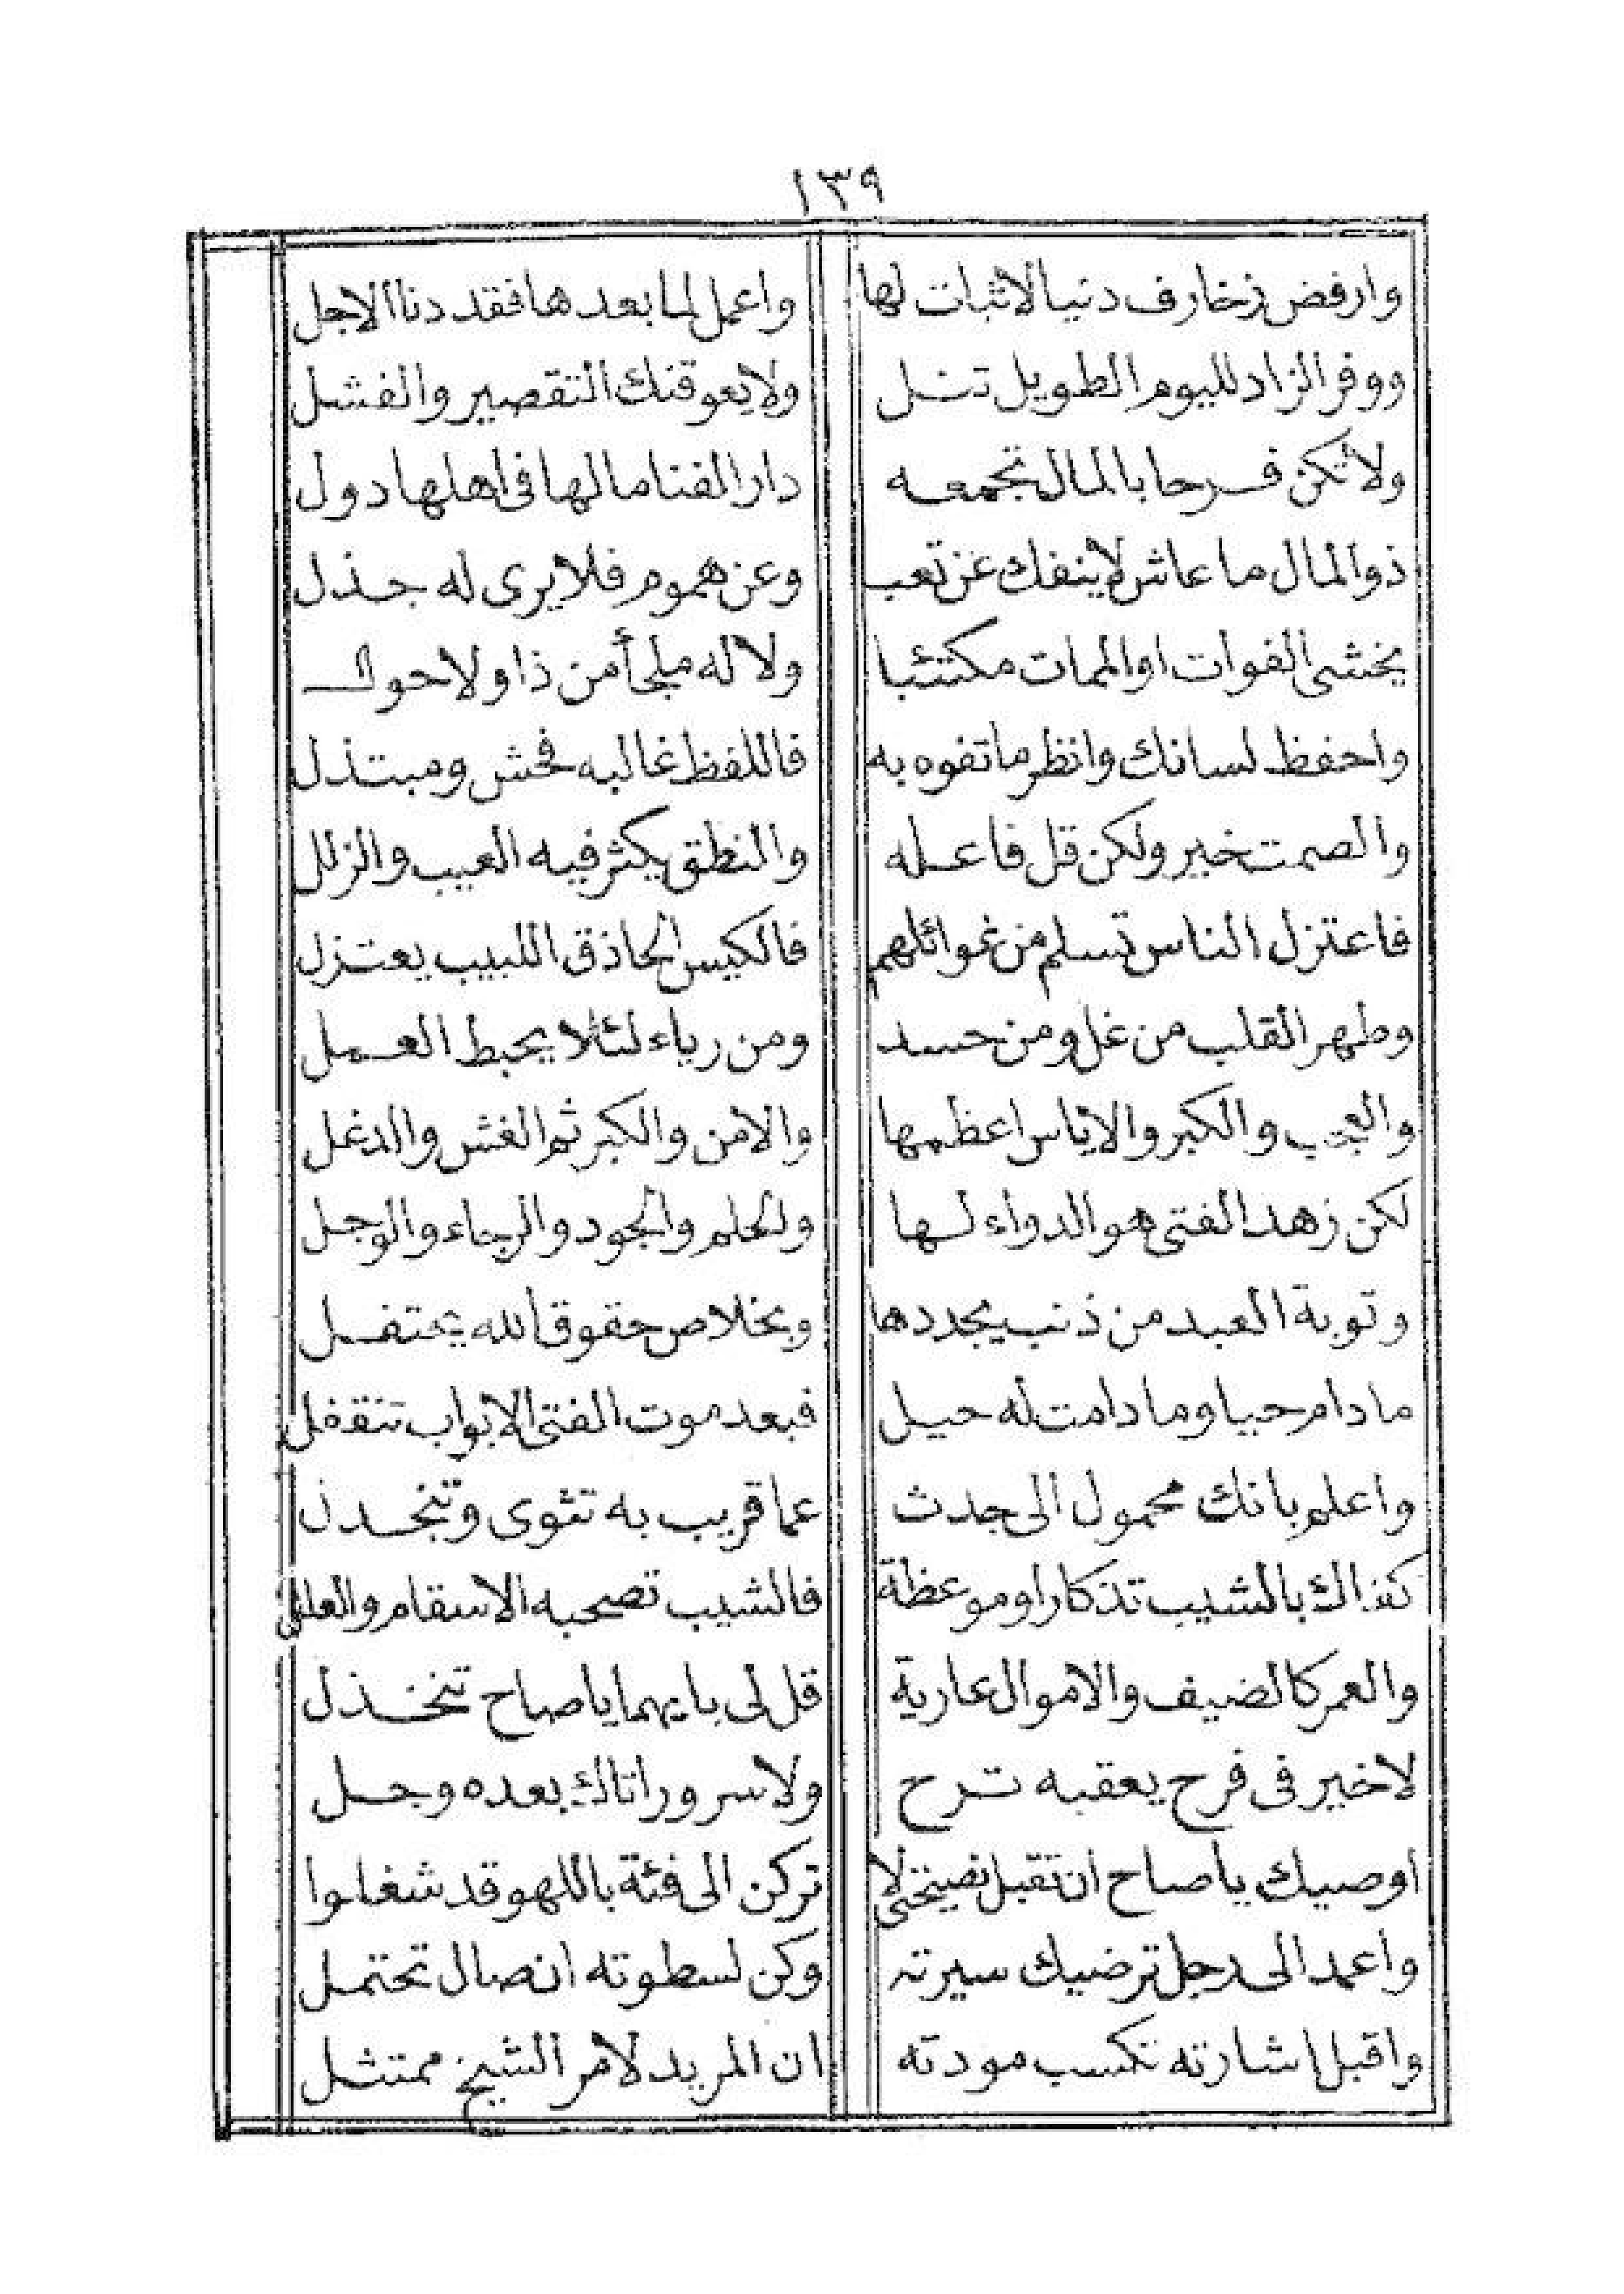 ١٣٩
وارفض زخارف دنيا لاثبات لها واعمل لما بعدها فقد دنا الاجل
ووفر الزاد لليوم الطويل تنل ولا يعوقنك التقصير والفشل
ولا تكن فرحا بالمال تجمعه دار الفنا مالها فى اهلها دول
ذو المال ما عاش لا ينفك عن تعب وعن هموم فلا يرى له جذل
يخشى الفوات او الممات مكتئبا ولا له ملجأ من ذا ولا حول
واحفظ لسانك وانظر ما تفوه به فاللفظ غالبه فحش ومبتذل
والصمت خير ولكن قل فاعله والنطق يكثر فيه العيب والزلل
فاعتزل الناس تسلم من غوائلهم فالكيس الحاذق اللبيب يعتزل
وطهر القلب من غل ومن حسد ومن رياء لئلا يحبط العمل
والعجب والكبر والاياس اعظمها والامن والكبر ثم الغش والدغل
لكن زهد الفتى هو الدواء لها والحلم والجود والرجاء والوجل
وتوبة العبد من ذنب يجددها وبخلاص حقوق الله يحتفل
ما دام حيا وما دامت له حيل فبعد موت الفتى الابواب تنقفل
واعلم بانك محمول الى جدث عما قريب به تثوى وتنجدل
كفاك بالشيب تذكارا وموعظة فالشيب تصحبه الاسقام والعلل
والعمر كالضيف والاموال عارية قل لى بايهما يا صاح تنخذل
لا خير فى فرح يعقبه ترح ولا سرور اتاك بعده وجل
اوصيك يا صاح ان تقبل نصيحتى لا تركن الى فئة باللهو قد شغلوا
واعمد الى رجل ترضيك سيرته وكن لسطوته ان صال تحتمل
واقبل اشارته تكسب مودته ان المريد لامر الشيخ ممتثل